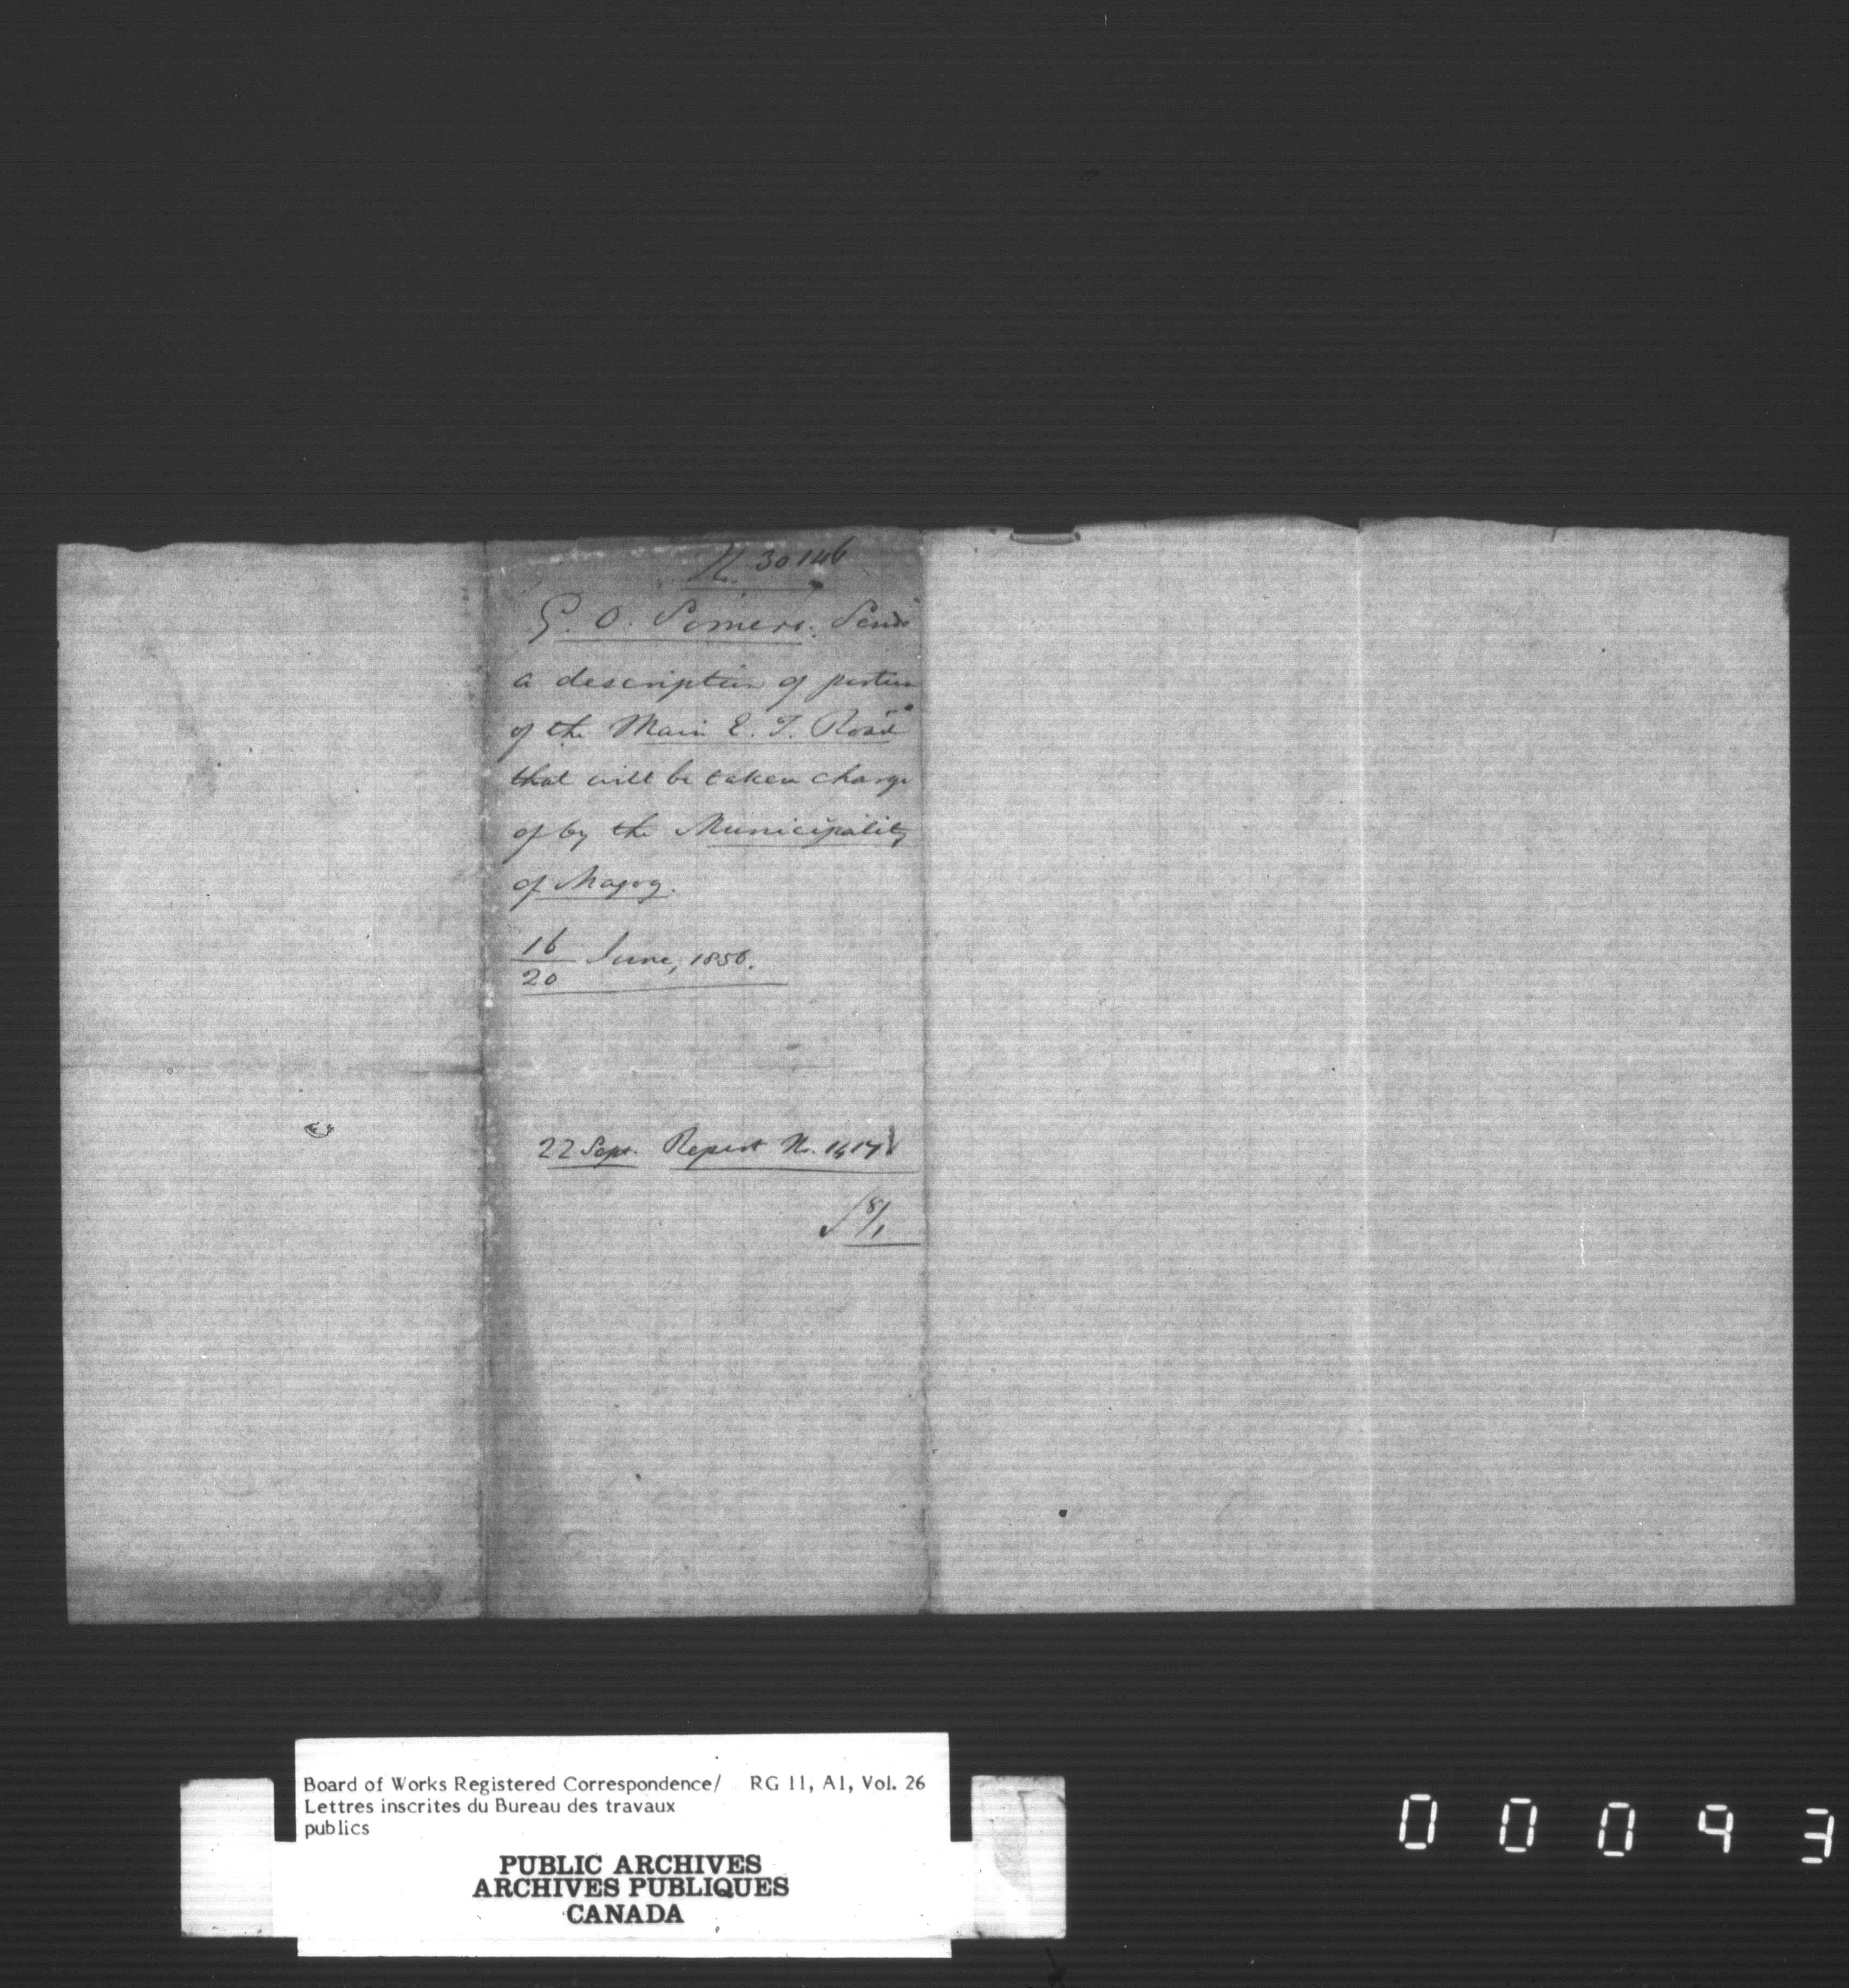 No. 30146
G. O. Somers. Sends
a description of portion
of the Main E. T. Road
that will be taken charge
of by the Municipality
of Magog.
16
20 June, 1856.
22 Sept. Report No.
Board of Works Registered Correspondence/ RG 11, A1, Vol. 26
Lettres inscrites du Bureau des travaux
publics
PUBLIC ARCHIVES
ARCHIVES PUBLIQUES
CANADA
00093